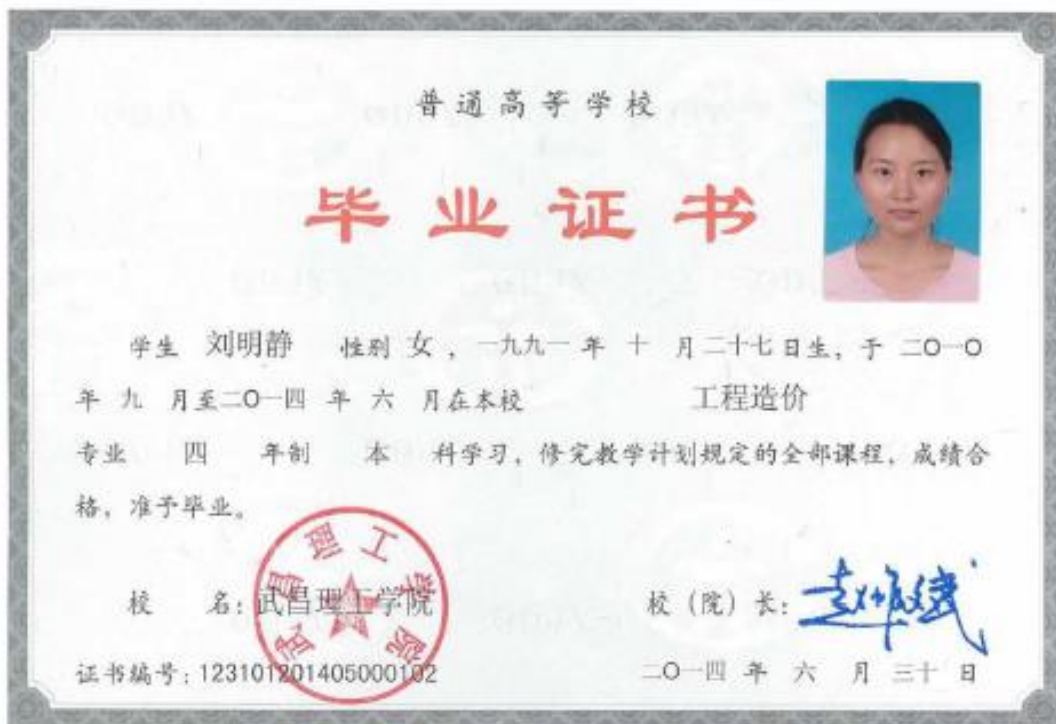 普通高等学校
毕业证书
学生 刘明静 性别 女，一九九一 年 十 月二十七日生，于 二O一O
年 九 月至二O一四 年 六 月在本校 工程造价
专业 四 年制 本 科学习，修完教学计划规定的全部课程，成绩合
格，准予毕业。
武昌理工学院
校 名：武昌理工学院 校（院）长：
证书编号：123101201405000102 二O一四 年 六 月 三十 日